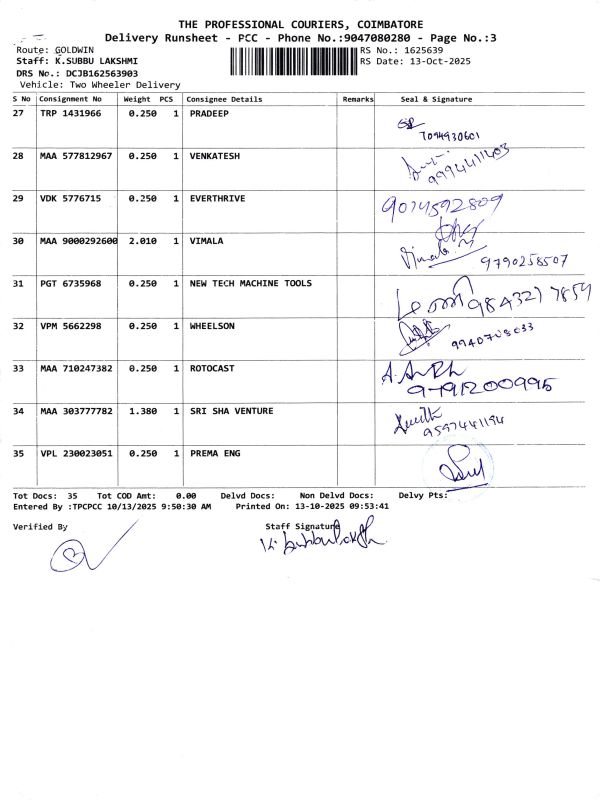 THE PROFESSIONAL COURIERS, COIMBATORE
Delivery Runsheet - PCC - Phone No.:9047080280 - Page No.:3
Route: GOLDWIN RS No.: 1625639
Staff: K.SUBBU LAKSHMI RS Date: 13-Oct-2025
DRS No.: DCJB162563903
Vehicle: Two Wheeler Delivery
S No Consignment No Weight PCS Consignee Details Remarks Seal & Signature
27 TRP 1431966 0.250 1 PRADEEP
7094930601
28 MAA 577812967 0.250 1 VENKATESH
9994411403
29 VDK 5776715 0.250 1 EVERTHRIVE 9074592809
30 MAA 9000292600 2.010 1 VIMALA
Vimala 9790258507
31 PGT 6735968 0.250 1 NEW TECH MACHINE TOOLS
9843217859
32 VPM 5662298 0.250 1 WHEELSON
33 MAA 710247382 0.250 1 ROTOCAST
9791200995
34 MAA 303777782 1.380 1 SRI SHA VENTURE
9597441194
35 VPL 230023051 0.250 1 PREMA ENG
Tot Docs: 35 Tot COD Amt: 0.00 Delvd Docs: Non Delvd Docs: Delvy Pts:
Entered By :TPCPCC 10/13/2025 9:50:30 AM Printed On: 13-10-2025 09:53:41
Verified By Staff Signature
K. Subbulaksh